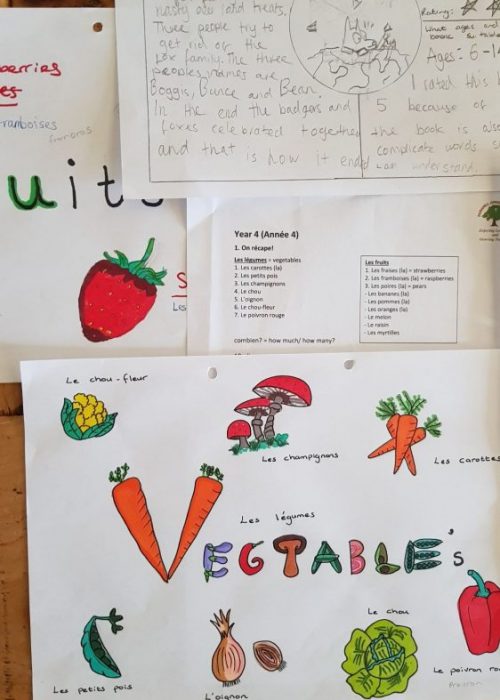 nasty and told treats.
Three people try to
get rid of the
fox family. The three
peoples names are
Boggis, Bunce and Bean.
In the end the badgers and
foxes celebrated together
and that is how it ended
Rating:
What ages and
Ages:- 6-1
I rated this
5 because of
the book is also
complicate words
can understand.
berries
framboises
uits
S
Les
Year 4 (Année 4)
1. On récape!
Les légumes = vegetables
1. Les carottes (la)
2. Les petits pois
3. Les champignons
4. Le chou
5. L'oignon
6. Le chou-fleur
7. Le poivron rouge
combien? = how much/ how many?
Les fruits
1. Les fraises (la) = strawberries
2. Les framboises (la) = raspberries
3. Les poires (la) = pears
- Les bananes (la)
- Les pommes (la)
- Les oranges (la)
- Le melon
- Le raisin
- Les myrtilles
Le chou-fleur
Les champignons
Les carottes
Les légumes
VEGTABLE's
Les petits pois
L'oignon
Le chou
Le poivron ro